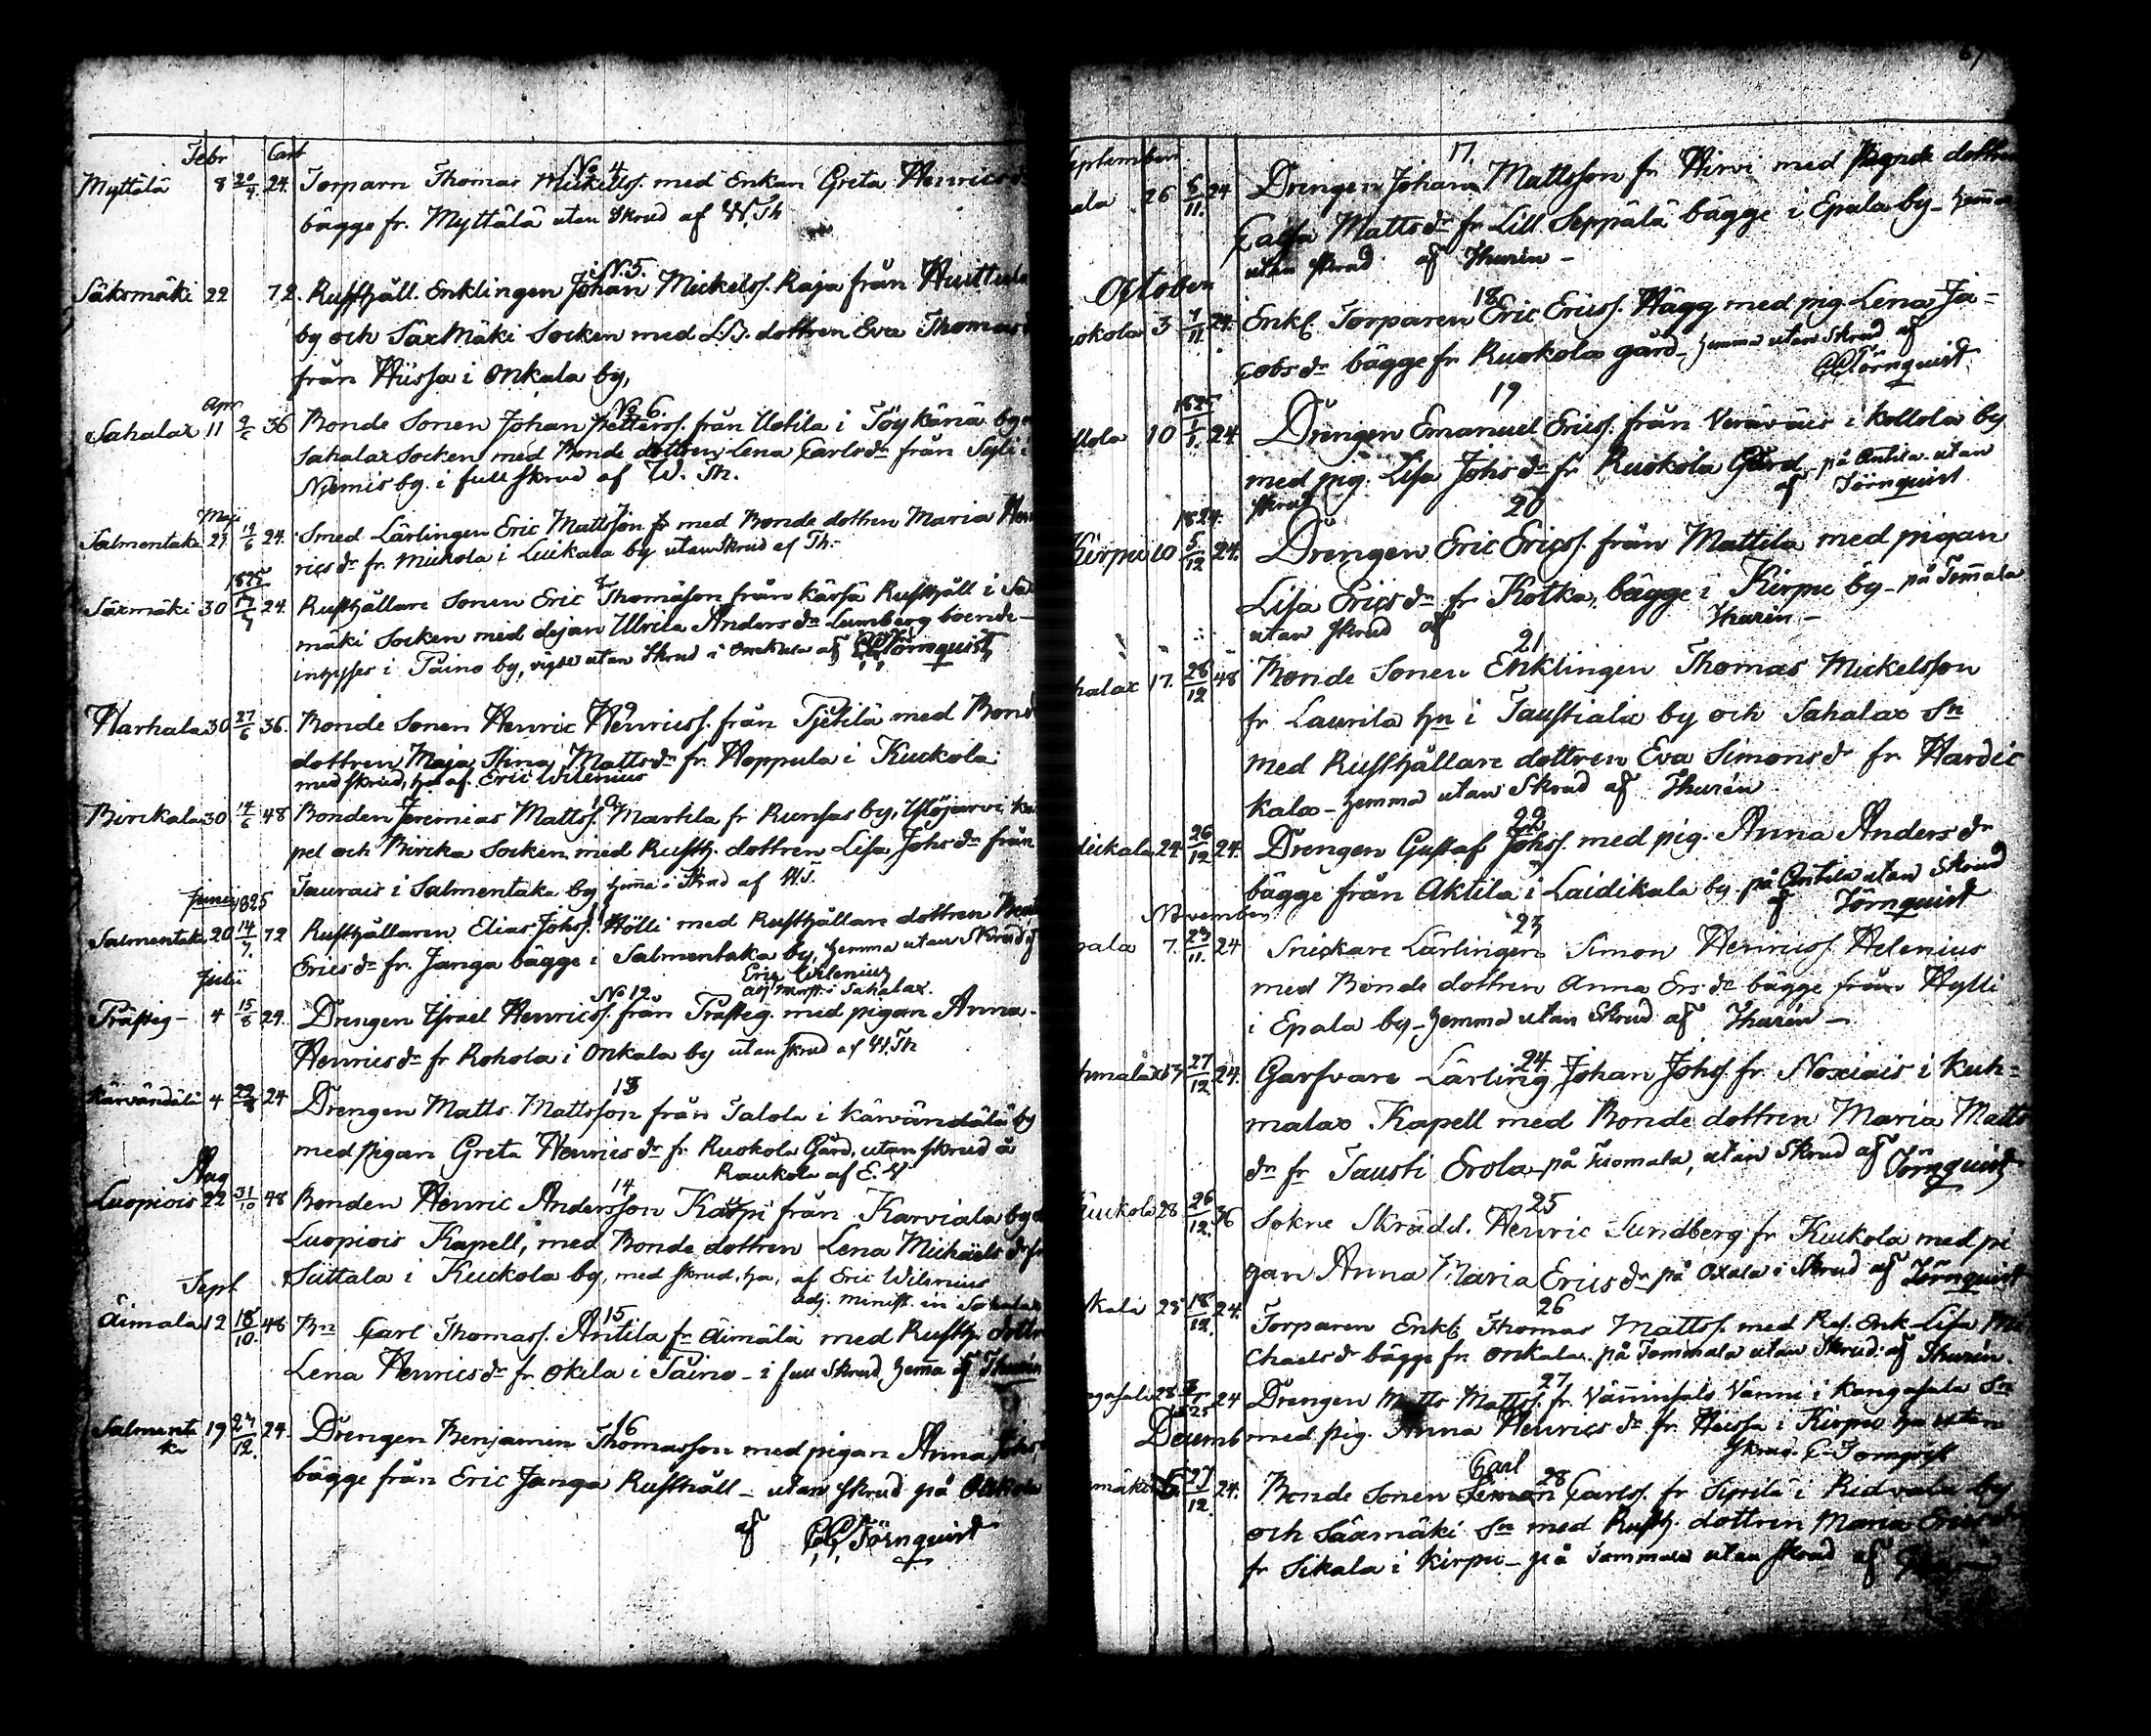 Febr Cart
No 4.
Myttälä 8 20/4. 24. Torparn Thomas Mickelss. med Enkan Greta Henrics
bägge fr. Myttälä utan Skrud af W. Th
N. 5.
Säksmäki 22 72. Rusthåll. Enklingen Johan Mickelss. Raja från Huittula
by och Säxmäki Socken med L.B. dottren Eva Thomas
från Hiissa i Onkala by,
Apr No 6.
Sahalax 11 36 Bonde Sonen Johan Petterss. från Uotila i Töykänä by
Sahalax Socken med Bonde dottren Lena Carlsdr från
Njemis by. i full skrud af W. Th.
Maji
Salmentaka 27 19/6 24. Smed Lärlingen Eric Mattsson fr med Bonde dottren Maria Hen
ricsdr fr. Mickola i Luikala by utan Skrud af Th.
1825
Säxmäki 30 24. Rusthållare Sonen Eric Thomasson från Kärsä Rusthåll i Säx
mäki Socken med dejan Ulrica Andersdr Lumberg boende
inhyses i Päino by, vigde utan Skrud i Onkala af C.G. Törnquist
9
Harhala 30 27/6 36. Bonde Sonen Henric Henricss. från Tjetilä med Bond
dottren Maja Stina Mattsdr fr. Hoppula i Kuckola
med skrud, ha af. Eric Wilenius
10
Birckala 30 14/6 48 Bonden Jeremias Mattss. Martila fr Runsas by, Ylöjärvi ka
pel och Bircka Socken med Rusth. dottren Lisa Johsdr från
Taurais i Salmentaka by hemma i Skrud af W.T.
Junii 1825
Salmentaka 20 14/7. 72 Rusthållaren Elias Johss. Hölli med Rusthållare dottren
Ericsdr fr. Janga bägge i Salmentaka by, hemma utan Skrud af
Julii Eric Wilenius
No 12. adj minist. i Sahalax.
Prästeg 4 15/8 24. Drengen Israel Henricss. från Prästeg. med pigan Anna
Henricsdr fr Rohola i Onkala by utan skrud af W. Th
13
Kärvändälä 4 24 Drengen Matts Mattsson från Talola i Kärvändälä by
med pigan Greta Henricsdr fr. Ruokola Gård, utan skrud å
Aug Raukola af E. W.
14
Luopiois 22 31/10 48 Bonden Henric Andersson Kaspi från Karviala by
Luopiois Kapell, med Bonde dottren Lena Michaelsdr fr
Suttala i Kuckola by, med skrud, ha, af Eric Wilenius
Sept adj. minist. in Sahalax
15
Äimala 12 18/10. 48 Bn Carl Thomass. Antila fr Äimälä med Rusth. dottr
Lena Henricsdr fr. Okila i Päino - i full Skrud hemma af Thurén
16
Salmenta 19 27/12. 24. Drengen Benjamin Thomasson med pigan Anna Johs
ka bägge från Eric Janga Rusthåll - utan skrud på
af C.G. Törnquist
67
September
17.
ala 26 5/11. 24 Drengen Johan Mattsson fr Hirvi med Bonde dottren
Caisa Mattsdr fr Lill Seppälä bägge i Epala by - hemma
utan skrud af Thurén -
October
18
uokola 3 7/11 24. Enkl. Torparen Eric Ericss. Hägg med pig. Lena Ja=
cobsdr bägge fr Ruokola gård - hemma utan Skrud af
CG Törnquist
19
1825
llola 10 1/1. 24 Drengen Emanuel Ericss. från Veräväis i Kollola by
med pig. Lisa Johsdr fr Ruokola Gård på Antila. utan
skrud af Törnquist
1824. 20
Kirpu 10 5/12 24. Drengen Eric Ericss. från Mattila med pigan
Lisa Ericsdr fr Kotka, bägge i Kirpu by - på Tommala
utan skrud af Thurén -
21
halax 17. 26/12 48 Bonde Sonen Enklingen Thomas Mickelsson
fr Laurila hn i Taustiala by och Sahalax Sn
med Rusthållare dottren Eva Simonsdr fr. Hardic
kala - hemma utan Skrud af Thurén
22
dickala 24 26/12 24. Drengen Gustaf Johss. med pig. Anna Andersdr
bägge från Aktila i Laidikala by på Antila utan Skrud
November af Törnquist
23
pala 7. 23/11. 24 Snickare Lärlingen Simon Henricss. Helenius
med Bonde dottren Anna Ersdr bägge från Hylli
i Epala by - hemma utan Skrud af Thurén -
24.
hmalax 13 27/12 24. Garfvare Lärling Johan Johss. fr. Noxiais i Kuh=
malax Kapell med Bonde dottren Maria Matts
dr fr Tausti Erola - på Tuomala, utan Skrud af Törnquist
25
Kuckola 28 26/12. 36 Sokne Skrädd. Henric Sundberg fr Kuckola med pi
gan Anna Maria Ericsdr på Oxala i Skrud af Törnquist
26
kala 25 18/12. 24. Torparen Enkl. Thomas Mattss. med Enk. Lisa Mi
chaelsdr bägge fr. Onkala. på Tommala utan Skrud af Thurén.
27
ngasala 28 24 Drengen Matts Mattss. fr. Vänninsalo Vänni i Kangasala Sn
1825
Decemb med pig. Anna Henricsdr fr. Heissa i Kirpu ha utan
Skrud. C. Törnqvist
Carl 28
mäki 6 27/12. 24. Bonde Sonen Simon Carlss. fr Sipilä i Ridvala by
och Säxmäki Sn med Rusth. dottren Maria Ericsdr
fr Sikala i Kirpu - på Tommala utan skrud af